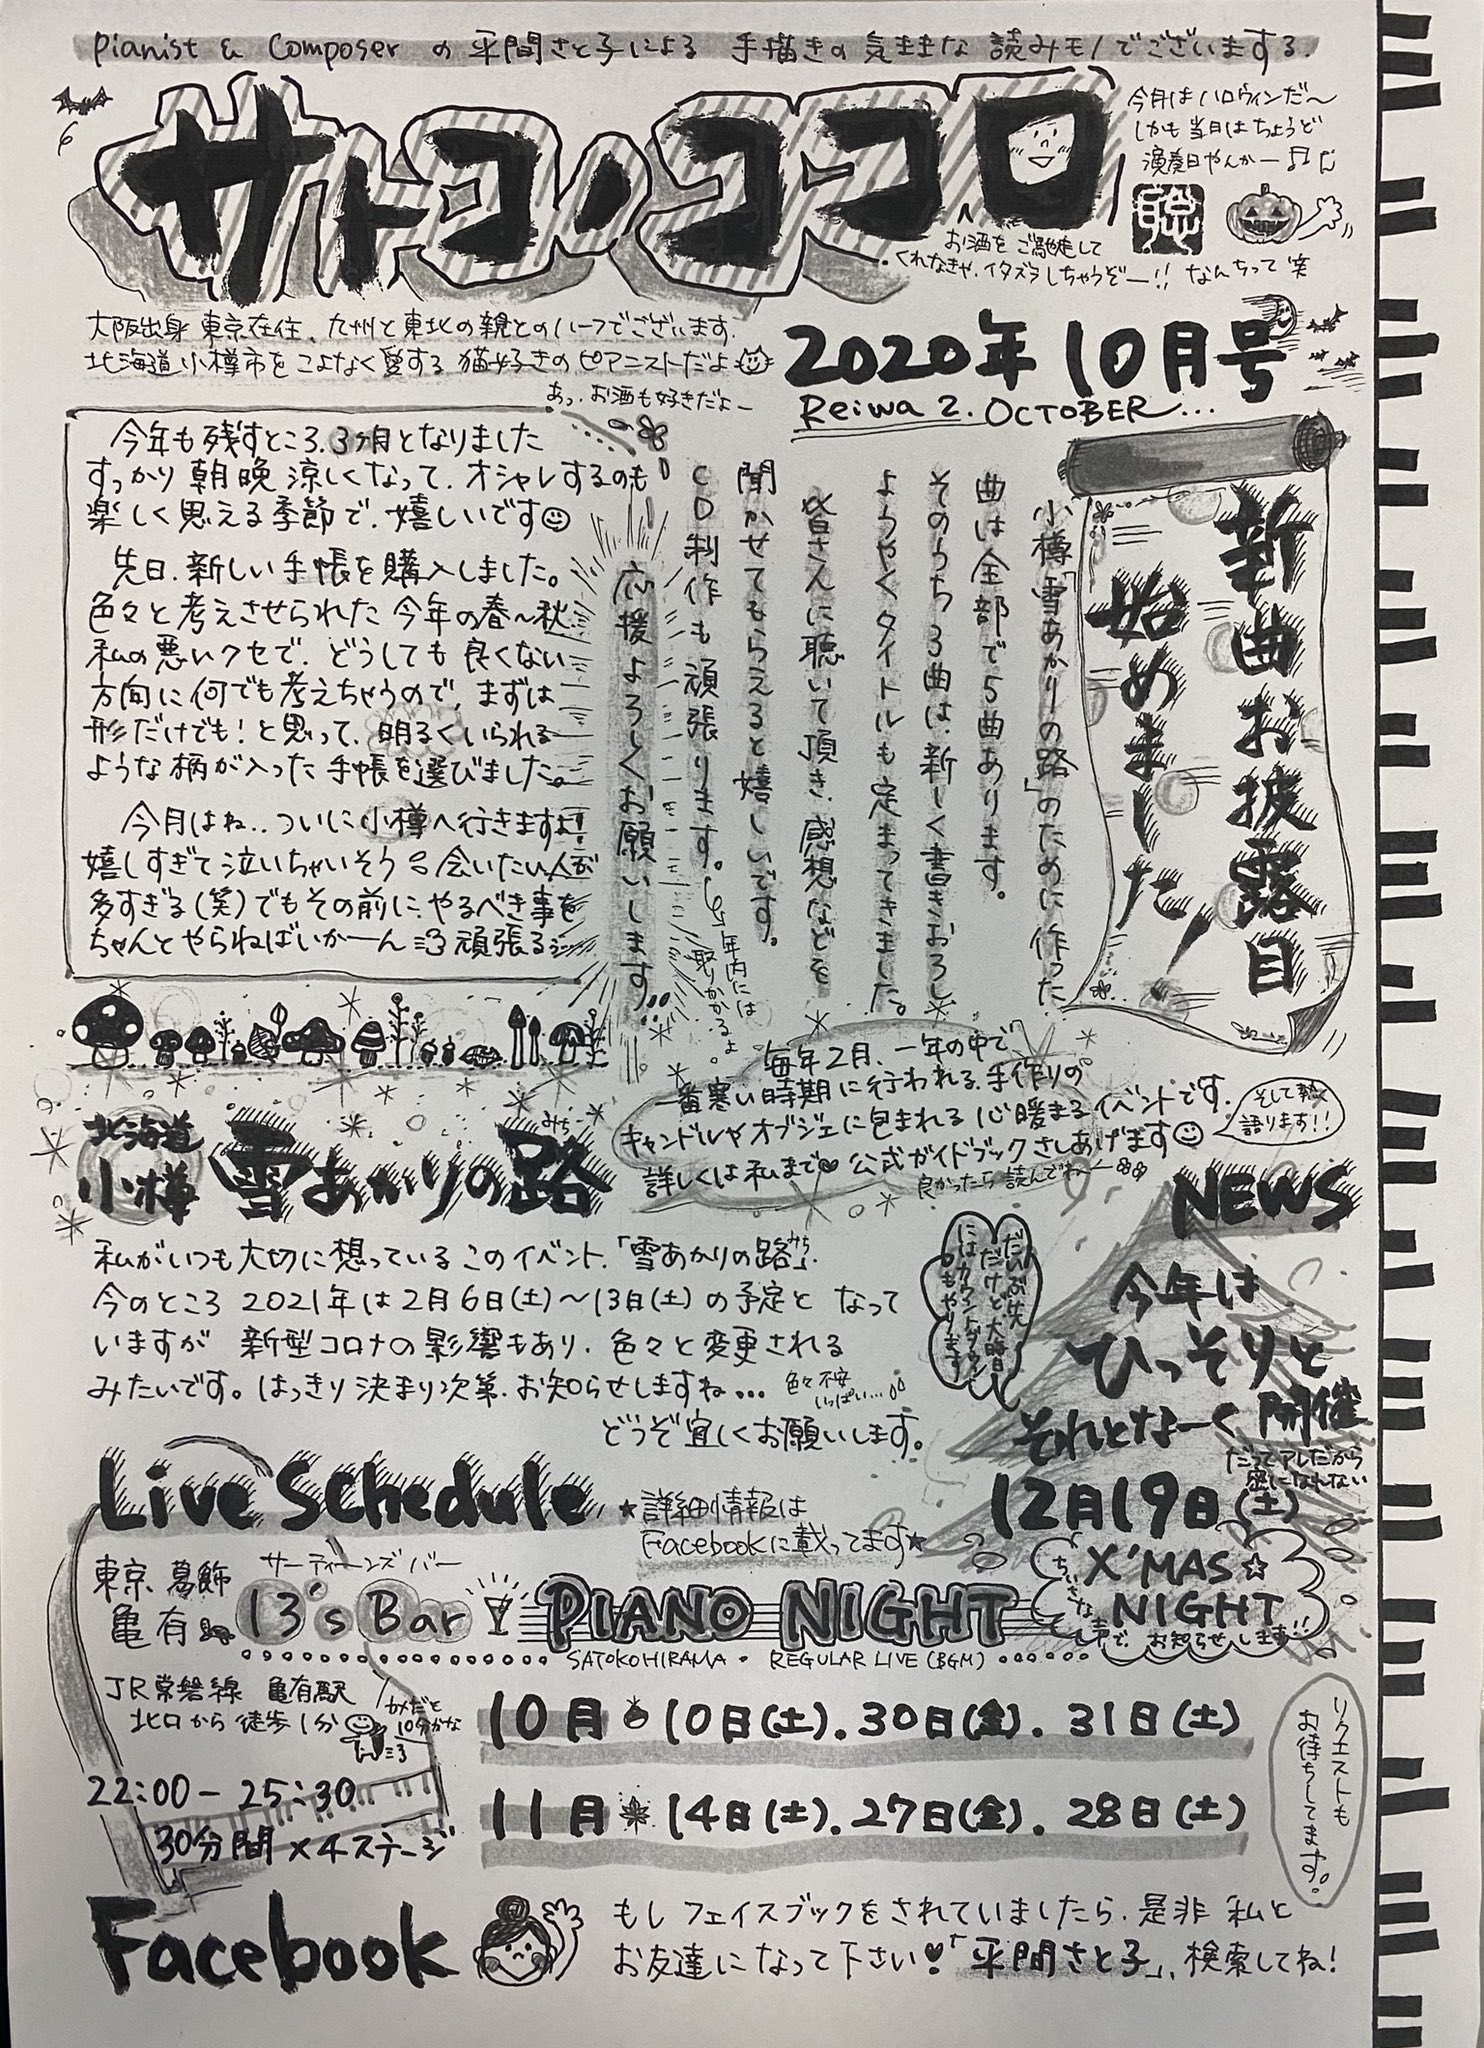 pianist & Composer の 平間さと子による 手描きの 気ままな 読みモノでございまする.
サトコノココロ
今月はハロウィンだ〜
しかも当日はちょうど
演奏日やんかー♫
聡
お酒をご馳走して
くれなきゃ、イタズラしちゃうぞー!! なんちって 笑
大阪出身 東京在住、九州と東北の親とのハーフでございます.
北海道小樽市をこよなく愛する 猫好きのピアニストだよ
あっ、お酒も好きだよー
2020年10月号
Reiwa 2. OCTOBER...
今年も残すところ、3ヶ月となりました
すっかり 朝晩 涼しくなって、オシャレするのも
楽しく思える季節で、嬉しいです☺
先日、新しい手帳を購入しました。
色々と考えさせられた今年の春〜秋
私の悪いクセで、どうしても良くない
方向に何でも考えちゃうので、まずは
形だけでも!と思って、明るくいられる
ような柄が入った手帳を選びました。
今月はね..ついに小樽へ行きますよ!!
嬉しすぎて泣いちゃいそう 会いたい人が
多すぎる(笑)でもその前に、やるべき事を
ちゃんとやらねばいかーん 頑張るぅ
新曲お披露目
始めました!
小樽「雪あかりの路」のために作った
曲は全部で5曲あります。
そのうち3曲は、新しく書きおろし
ようやくタイトルも定まってきました。
皆さんに聴いて頂き、感想などを
聞かせてもらえると嬉しいです。
CD制作も頑張ります。
年内には
取りかかるよ
応援よろしくお願いします
毎年2月、一年の中で
一番寒い時期に行われる、手作りの
キャンドルやオブジェに包まれる 心暖まるイベントです.
詳しくは私まで♥ 公式ガイドブックさしあげます☺
良かったら 読んでねー
そして熱く
語ります!!
北海道
小樽
雪あかりの路
みち
私がいつも大切に想っているこのイベント、「雪あかりの路」
みち
今のところ 2021年は2月6日(土)〜13日(土)の予定と なって
いますが 新型コロナの影響もあり、色々と変更される
みたいです。はっきり決まり次第、お知らせしますね...
色々不安
いっぱい...
どうぞ宜しくお願いします。
NEWS
今年は
ひっそりと
それとなーく 開催
だってアレだから
密になれない
12月19日(土)
X'MAS☆
NIGHT
ちいさな
声で お知らせします!!
だいぶ先
だけど、大晦日
にはカウントダウン
もやります
Live Schedule
★詳細情報は
Facebookに載ってます★
東京 葛飾
亀有
サーティーンズバー
13's Bar
PIANO NIGHT
SATOKO HIRAMA・ REGULAR LIVE (BGM)
JR常磐線 亀有駅
北口から 徒歩1分
カメだと
10分かな
22:00 - 25:30
30分間×4ステージ
10月 10日(土). 30日(金). 31日(土)
11月 14日(土). 27日(金). 28日(土)
リクエストも
お待ちしてます。
Facebook
もし フェイスブックをされていましたら、是非 私と
お友達になって下さい♥「平間さと子」、検索してね!